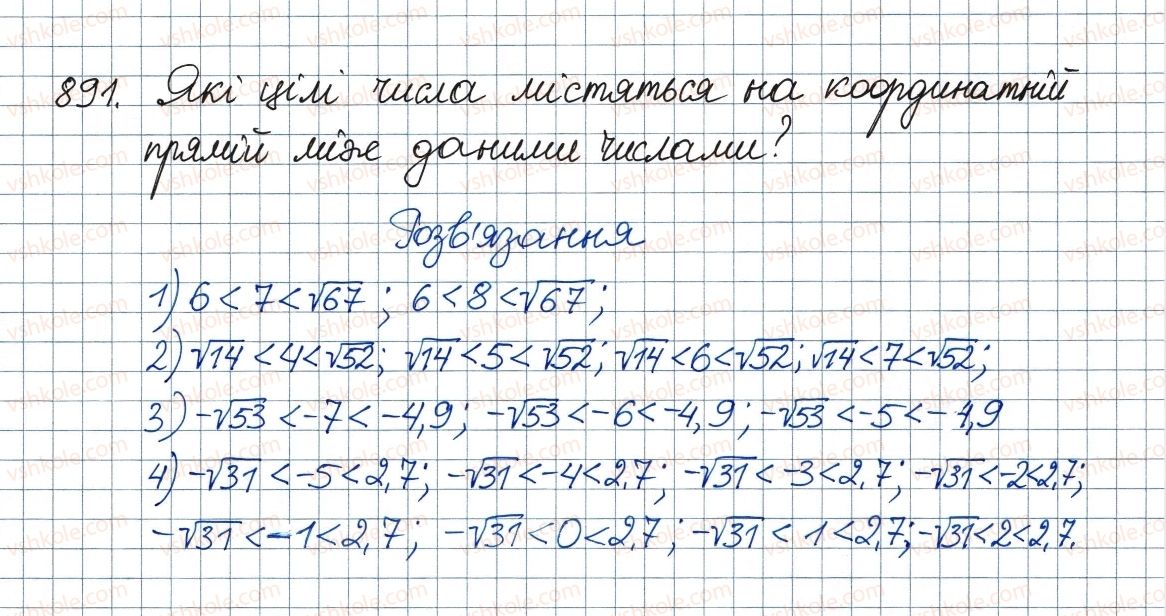 891. Які цілі числа містяться на координатній
прямій між даними числами?
Розв'язання
1) 6 < 7 < √67; 6 < 8 < √67;
2) √14 < 4 < √52; √14 < 5 < √52; √14 < 6 < √52; √14 < 7 < √52;
3) -√53 < -7 < -4,9; -√53 < -6 < -4,9; -√53 < -5 < -4,9
4) -√31 < -5 < 2,7; -√31 < -4 < 2,7; -√31 < -3 < 2,7; -√31 < -2 < 2,7;
-√31 < -1 < 2,7; -√31 < 0 < 2,7; -√31 < 1 < 2,7; -√31 < 2 < 2,7.